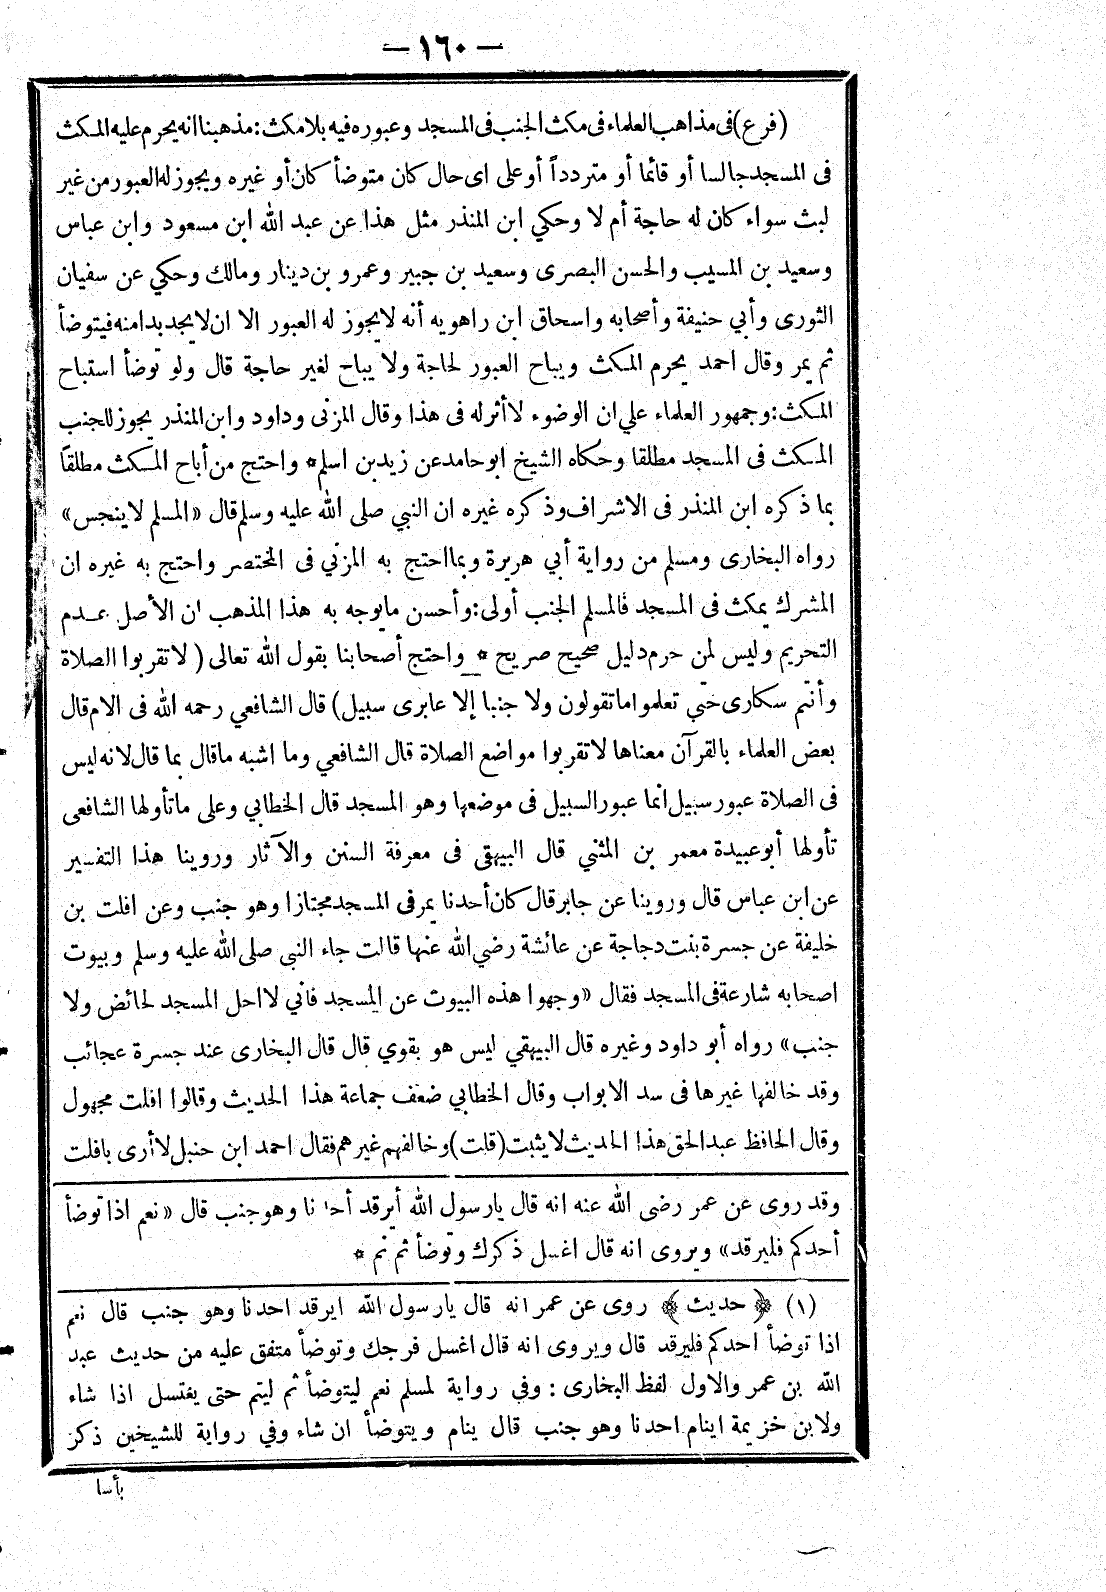 — ١٦٠ —
(فرع) فى مذاهب العلماء فى مكث الجنب فى المسجد وعبوره فيه بلا مكث : مذهبنا انه يحرم عليه المكث
فى المسجد جالسا أو قائما أو مترددا أو على اى حال كان متوضأ كان أو غيره ويجوز له العبور من غير
لبث سواء كان له حاجة أم لا وحكي ابن المنذر مثل هذا عن عبد الله ابن مسعود وابن عباس
وسعيد بن المسيب والحسن البصرى وسعيد بن جبير وعمرو بن دينار ومالك وحكي عن سفيان
الثورى وأبي حنيفة وأصحابه واسحاق ابن راهويه أنه لا يجوز له العبور الا ان لا يجد بدا منه فيتوضأ
ثم يمر وقال احمد يحرم المكث ويباح العبور لحاجة ولا يباح لغير حاجة قال ولو توضأ استباح
المكث : وجمهور العلماء علي ان الوضوء لا أثر له فى هذا وقال المزنى وداود وابن المنذر يجوز للجنب
المكث فى المسجد مطلقا وحكاه الشيخ ابو حامد عن زيد بن اسلم * واحتج من أباح المكث مطلقاً
بما ذكره ابن المنذر فى الاشراف وذكره غيره ان النبي صلى الله عليه وسلم قال «المسلم لا ينجس»
رواه البخارى ومسلم من رواية أبي هريرة وبما احتج به المزني فى المختصر واحتج به غيره ان
المشرك يمكث فى المسجد فالمسلم الجنب أولى : وأحسن ما يوجه به هذا المذهب ان الأصل عدم
التحريم وليس لمن حرم دليل صحيح صريح * واحتج أصحابنا بقول الله تعالى ( لا تقربوا الصلاة
وأنتم سكارى حتي تعلموا ما تقولون ولا جنبا إلا عابرى سبيل ) قال الشافعي رحمه الله فى الام قال
بعض العلماء بالقرآن معناها لا تقربوا مواضع الصلاة قال الشافعي وما اشبه ما قال بما قال لانه ليس
فى الصلاة عبور سبيل انما عبور السبيل فى موضعها وهو المسجد قال الخطابي وعلى ما تأولها الشافعى
تأولها أبو عبيدة معمر بن المثني قال البيهقى فى معرفة السنن والآثار وروينا هذا التفسير
عن ابن عباس قال وروينا عن جابر قال كان أحدنا يمر فى المسجد مجتازا وهو جنب وعن افلت بن
خليفة عن جسرة بنت دجاجة عن عائشة رضي الله عنها قالت جاء النبى صلى الله عليه وسلم وبيوت
اصحابه شارعة فى المسجد فقال «وجهوا هذه البيوت عن المسجد فاني لا احل المسجد لحائض ولا
جنب» رواه أبو داود وغيره قال البيهقي ليس هو بقوي قال قال البخارى عند جسرة عجائب
وقد خالفها غيرها فى سد الابواب وقال الخطابي ضعف جماعة هذا الحديث وقالوا افلت مجهول
وقال الحافظ عبد الحق هذا الحديث لا يثبت (قلت) وخالفهم غيرهم فقال احمد ابن حنبل لا أرى بافلت
وقد روى عن عمر رضى الله عنه انه قال يا رسول الله أيرقد أحدنا وهو جنب قال «نعم اذا توضأ
أحدكم فليرقد» ويروى انه قال اغسل ذكرك وتوضأ ثم نم *
(١) ﴿ حديث ﴾ روى عن عمر انه قال يا رسول الله ايرقد احدنا وهو جنب قال نعم
اذا توضأ احدكم فليرقد قال ويروى انه قال اغسل فرجك وتوضأ متفق عليه من حديث عبد
الله بن عمر والاول لفظ البخارى : وفي رواية لمسلم نعم ليتوضأ ثم لينم حتى يغتسل اذا شاء
ولابن خزيمة اينام احدنا وهو جنب قال ينام ويتوضأ ان شاء وفي رواية للشيخين ذكر
بأسا